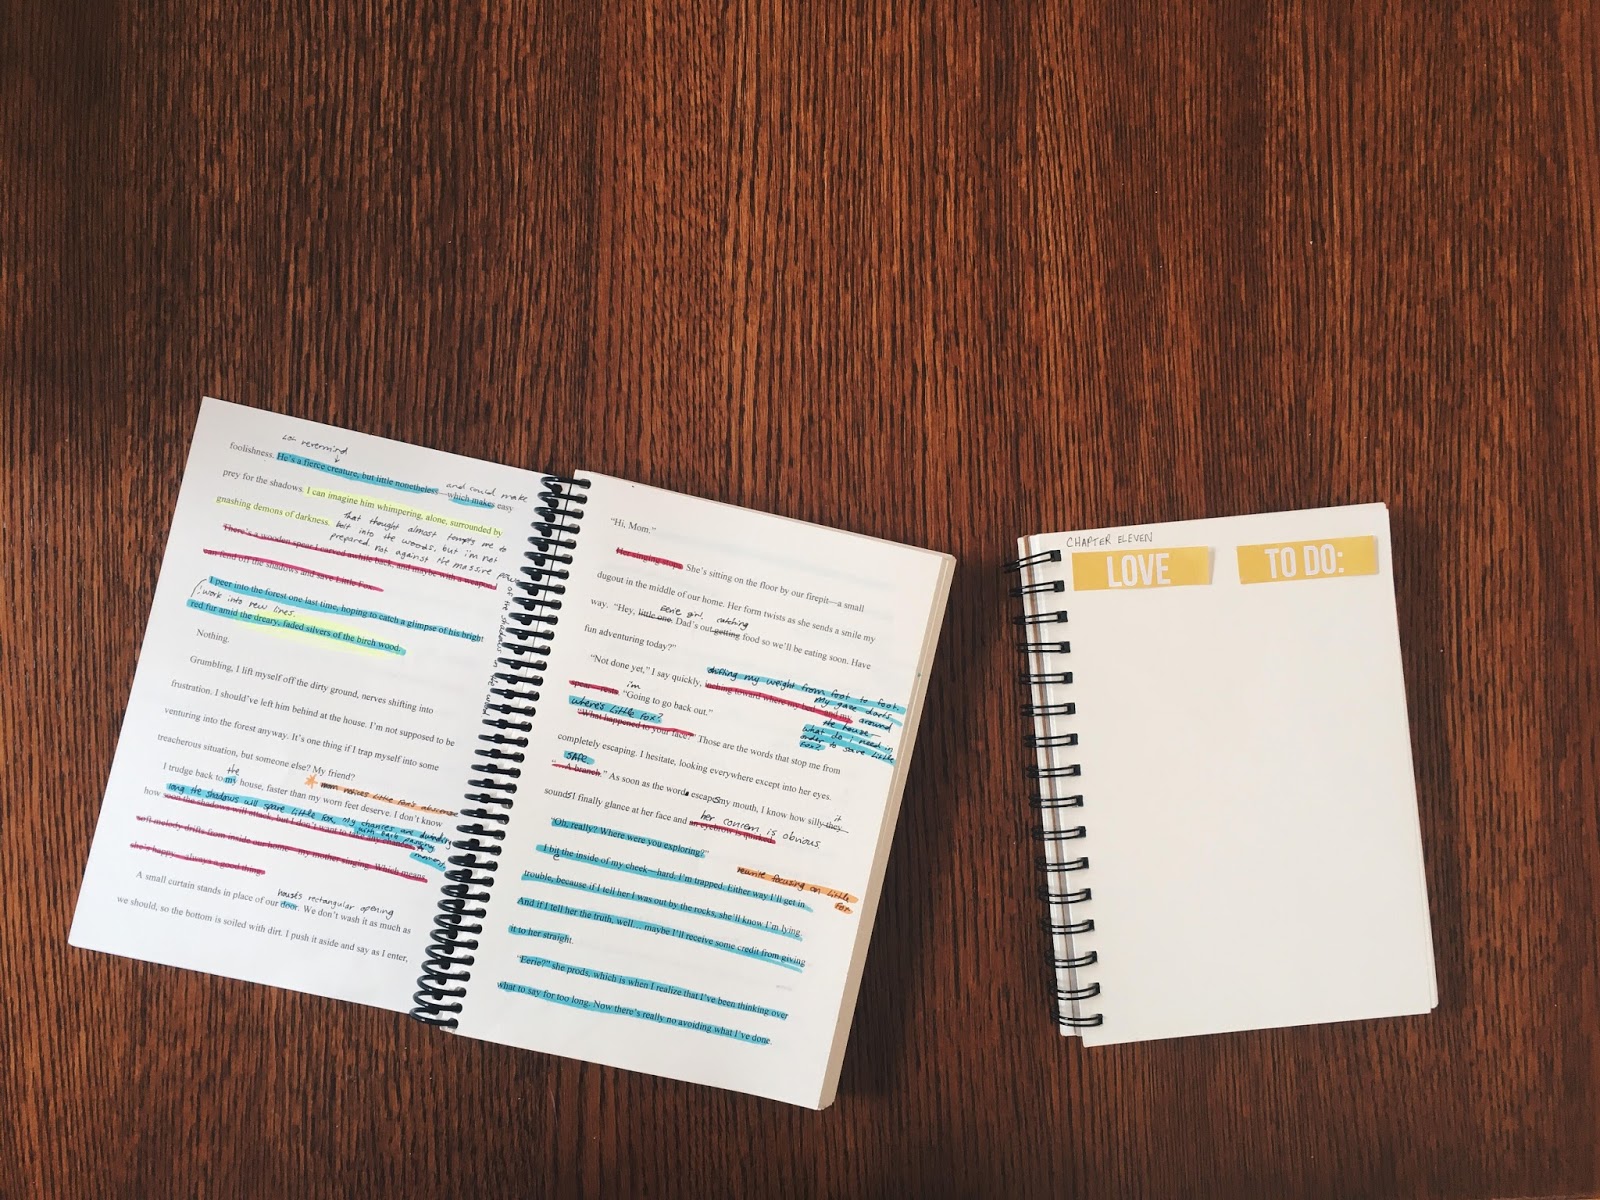 LOL nevermind
foolishness. He's a fierce creature, but little nonetheless—which makes easy
and could make
prey for the shadows. I can imagine him whimpering, alone, surrounded by
gnashing demons of darkness.
That thought almost tempts me to
bolt into the woods, but i'm not
prepared. not against the massive power
of the shadows in the woods
There's a wooden spear I carved awhile back, and maybe with a weapon
can fend off the shadows and save Little Fox.
I peer into the forest one last time, hoping to catch a glimpse of his bright
work into new lines.
red fur amid the dreary, faded silvers of the birch wood.
Nothing.
Grumbling, I lift myself off the dirty ground, nerves shifting into
frustration. I should've left him behind at the house. I'm not supposed to be
venturing into the forest anyway. It's one thing if I trap myself into some
treacherous situation, but someone else? My friend?
the
mom notices Little Fox's absence
I trudge back to my house, faster than my worn feet deserve. I don't know
long the shadows will spare Little Fox, my chances are dwindling
with each passing
moment.
how soon the shadows will attack, but I don't want to take any
soft melody drifts from inside our home—my mother singing. Which means
she's happy—always a good thing.
house's rectangular opening
A small curtain stands in place of our door. We don't wash it as much as
we should, so the bottom is soiled with dirt. I push it aside and say as I enter,
"Hi, Mom."
Her singing stops. She's sitting on the floor by our firepit—a small
dugout in the middle of our home. Her form twists as she sends a smile my
eerie girl. catching
way. "Hey, little one. Dad's out getting food so we'll be eating soon. Have
fun adventuring today?"
shifting my weight from foot to foot.
"Not done yet," I say quickly, inching toward where my
my gaze darts
around
the house—
what do I need in
order to save Little
Fox?
i'm
spear rests. "Going to go back out."
where's Little Fox?
"What happened to your face?" Those are the words that stop me from
completely escaping. I hesitate, looking everywhere except into her eyes.
safe
"A branch." As soon as the word escapes my mouth, I know how silly they
it
sounds. I finally glance at her face and an eyebrow is quirked.
her concern is obvious.
"Oh, really? Where were you exploring?"
I bite the inside of my cheek—hard. I'm trapped. Either way I'll get in
rewrite focusing on Little
Fox
trouble, because if I tell her I was out by the rocks, she'll know I'm lying.
And if I tell her the truth, well… maybe I'll receive some credit from giving
it to her straight.
"Eerie?" she prods, which is when I realize that I've been thinking over
what to say for too long. Now there's really no avoiding what I've done.
CHAPTER ELEVEN
LOVE
TO DO: